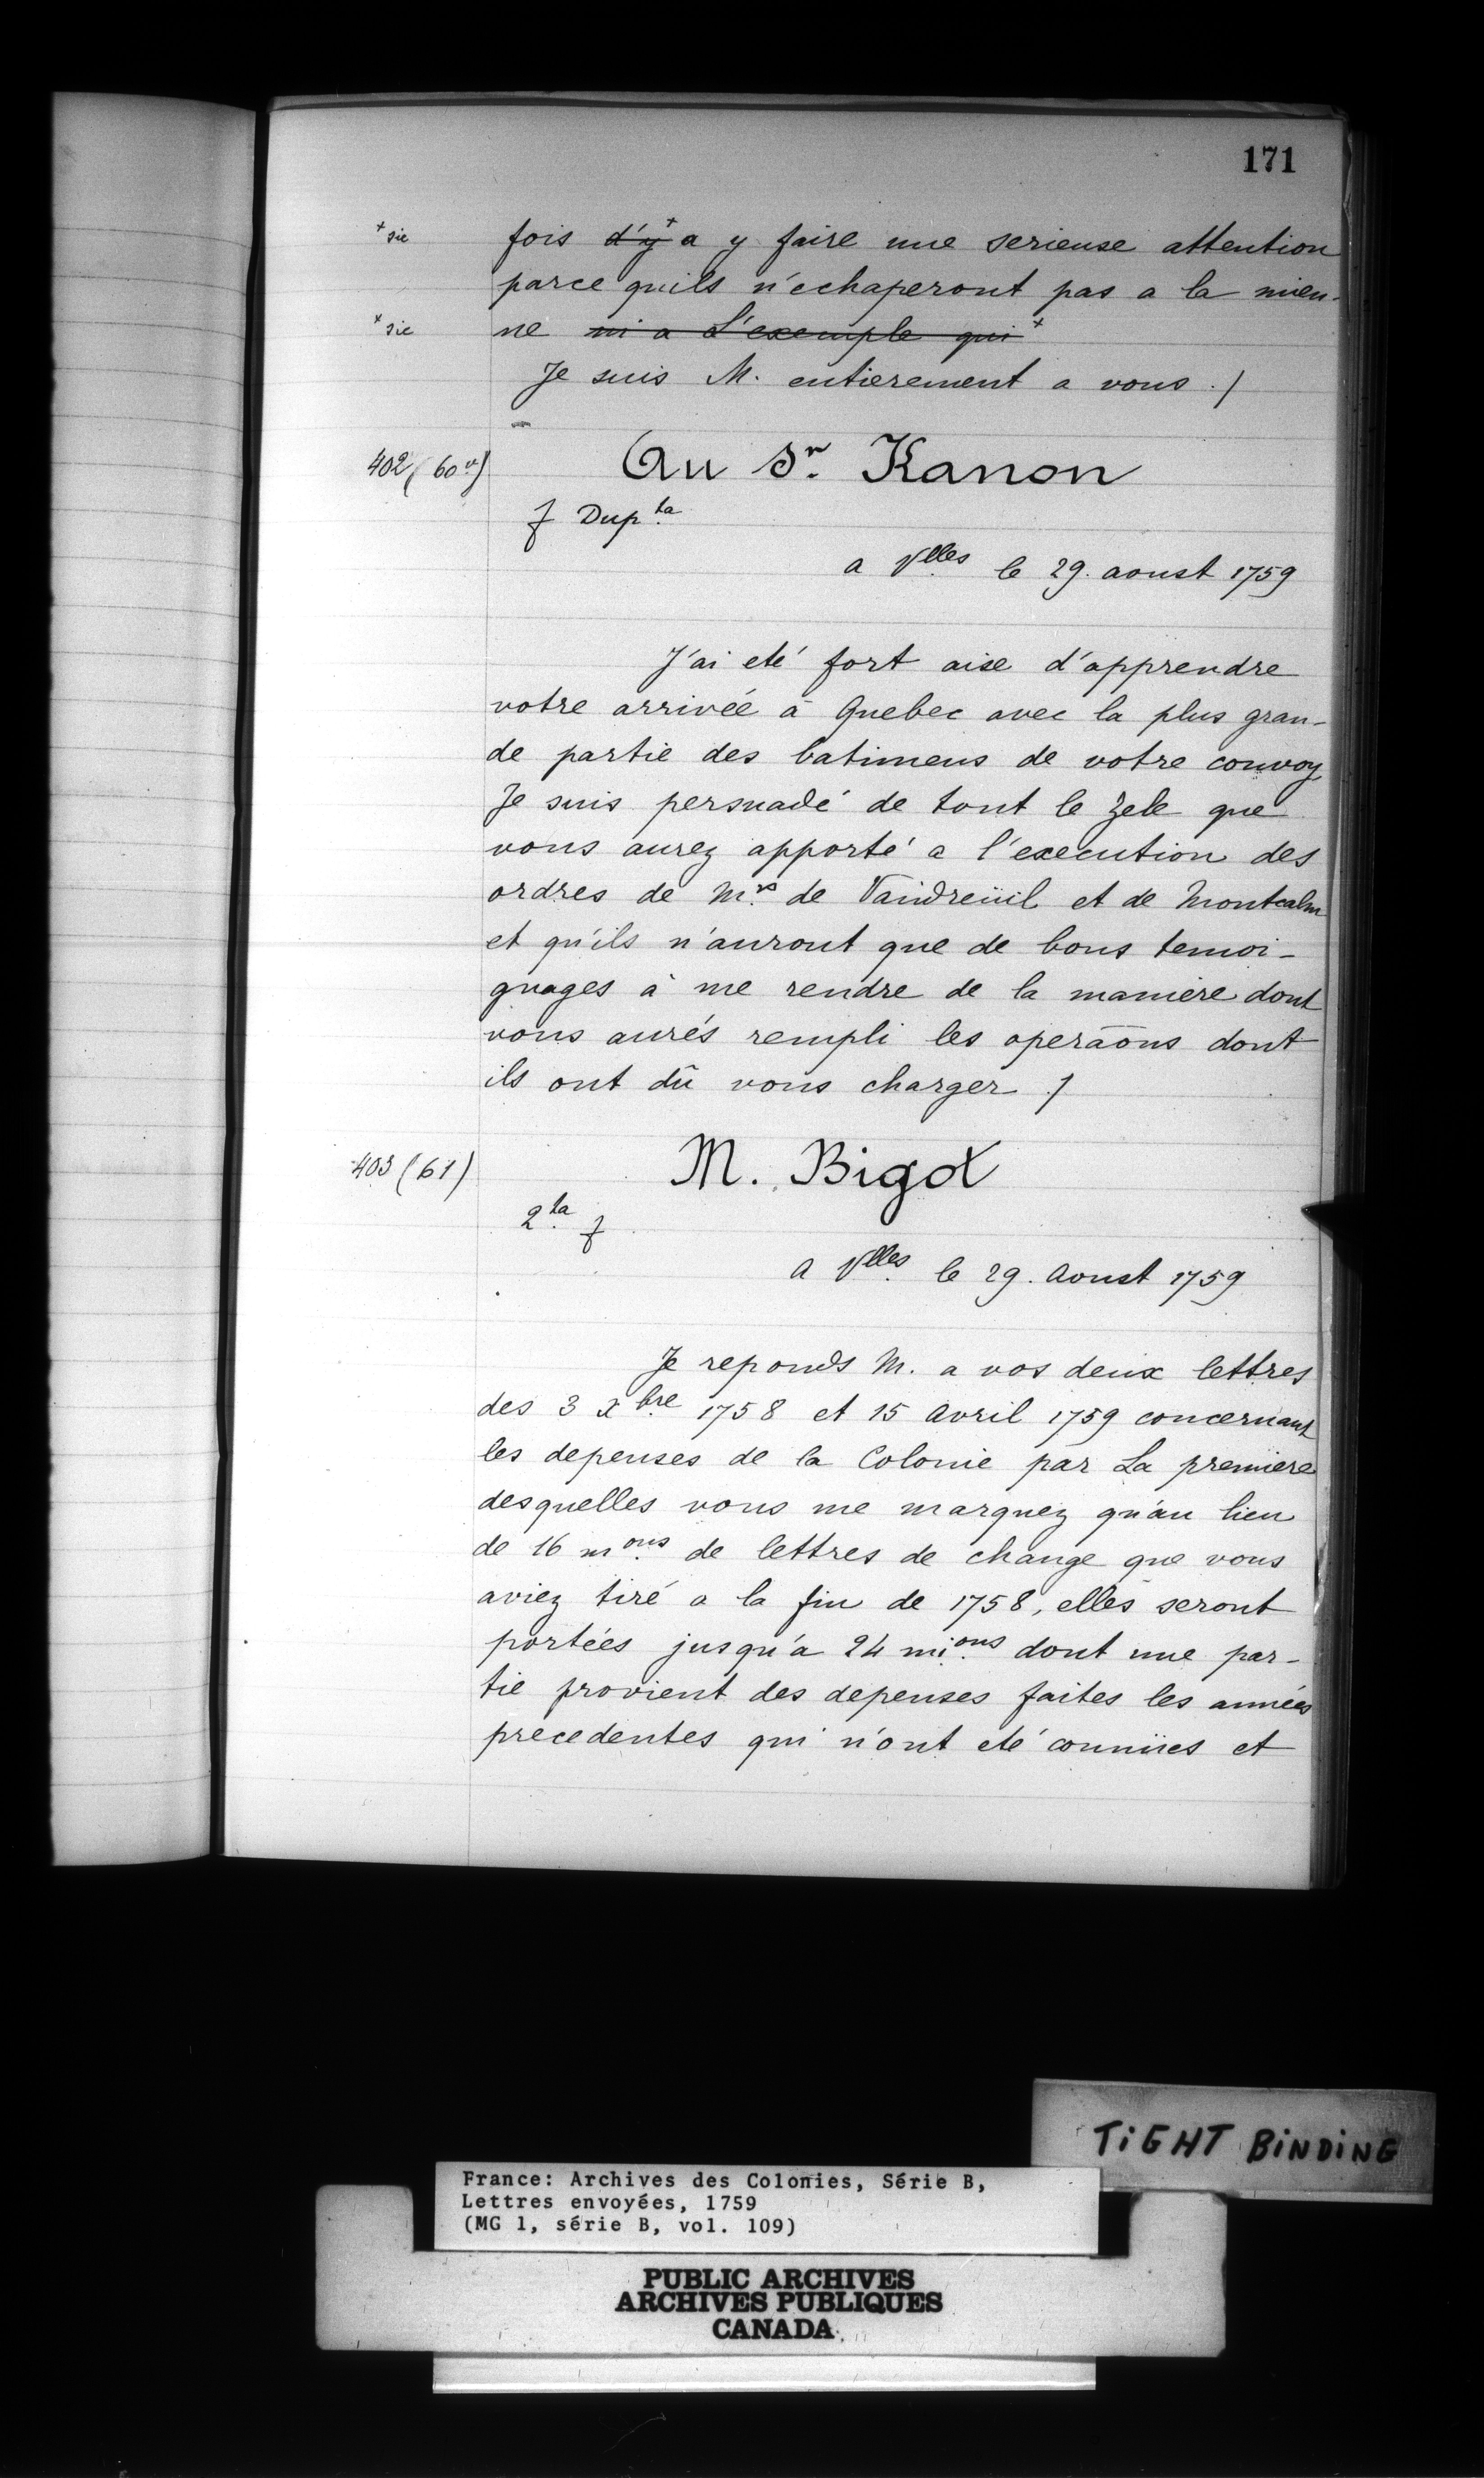 171
+ sic fois d'y+ a y faire une serieuse attention
parce qu'ils n'echaperont pas a la mien-
+ sic ne ni a L'exemple qui+
Je suis M. entierement a vous ./
402 (60vo) Au Sr. Kanon
f Dupta
a Vlles le 29. aoust 1759
J'ai eté fort aise d'apprendre
votre arrivée à Quebec avec la plus gran-
de partie des batimens de votre convoy
Je suis persuadé de tout le zele que
vous aurez apporté a l'execution des
ordres de Mrs de Vaudreüil et de Montcalm
et qu'ils n'auront que de bons temoi-
gnages à me rendre de la maniere dont
vous aurés rempli les operaõns dont
ils ont dû vous charger ./
403 (61) M. Bigot
2ta f
a Vlles le 29. Aoust 1759
Je reponds M. a vos deux lettres
des 3 Xbre 1758 et 15 Avril 1759 concernant
les depenses de la Colonie par La premiere
desquelles vous me marquez qu'au lieu
de 16 mons de lettres de change que vous
aviez tiré a la fin de 1758, elles seront
portées jusqu'a 24 mions dont une par-
tie provient des depenses faites les années
precedentes qui n'ont eté connües et
TiGHT BiNDiNG
France: Archives des Colonies, Série B,
Lettres envoyées, 1759
(MG 1, série B, vol. 109)
PUBLIC ARCHIVES
ARCHIVES PUBLIQUES
CANADA